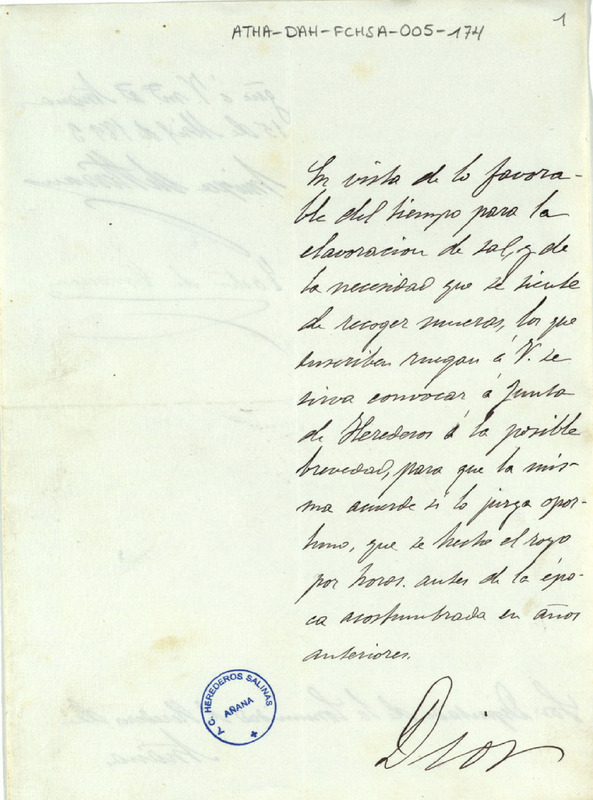 ATHA-DAH-FCHSA-005-174
1
En vista de lo favora-
ble del tiempo para la
elavoracion de sal, y de
la necesidad que se siente
de recoger mueras, los que
suscriben ruegan á V. se
sirva convocar á Junta
de Herederos á la posible
brevedad, para que la mis-
ma acuerde si lo juzga opor-
tuno, que se heche el royo
por horas antes de la épo-
ca acostumbrada en años
anteriores.
Dios
T.C. HEREDEROS SALINAS
AÑANA